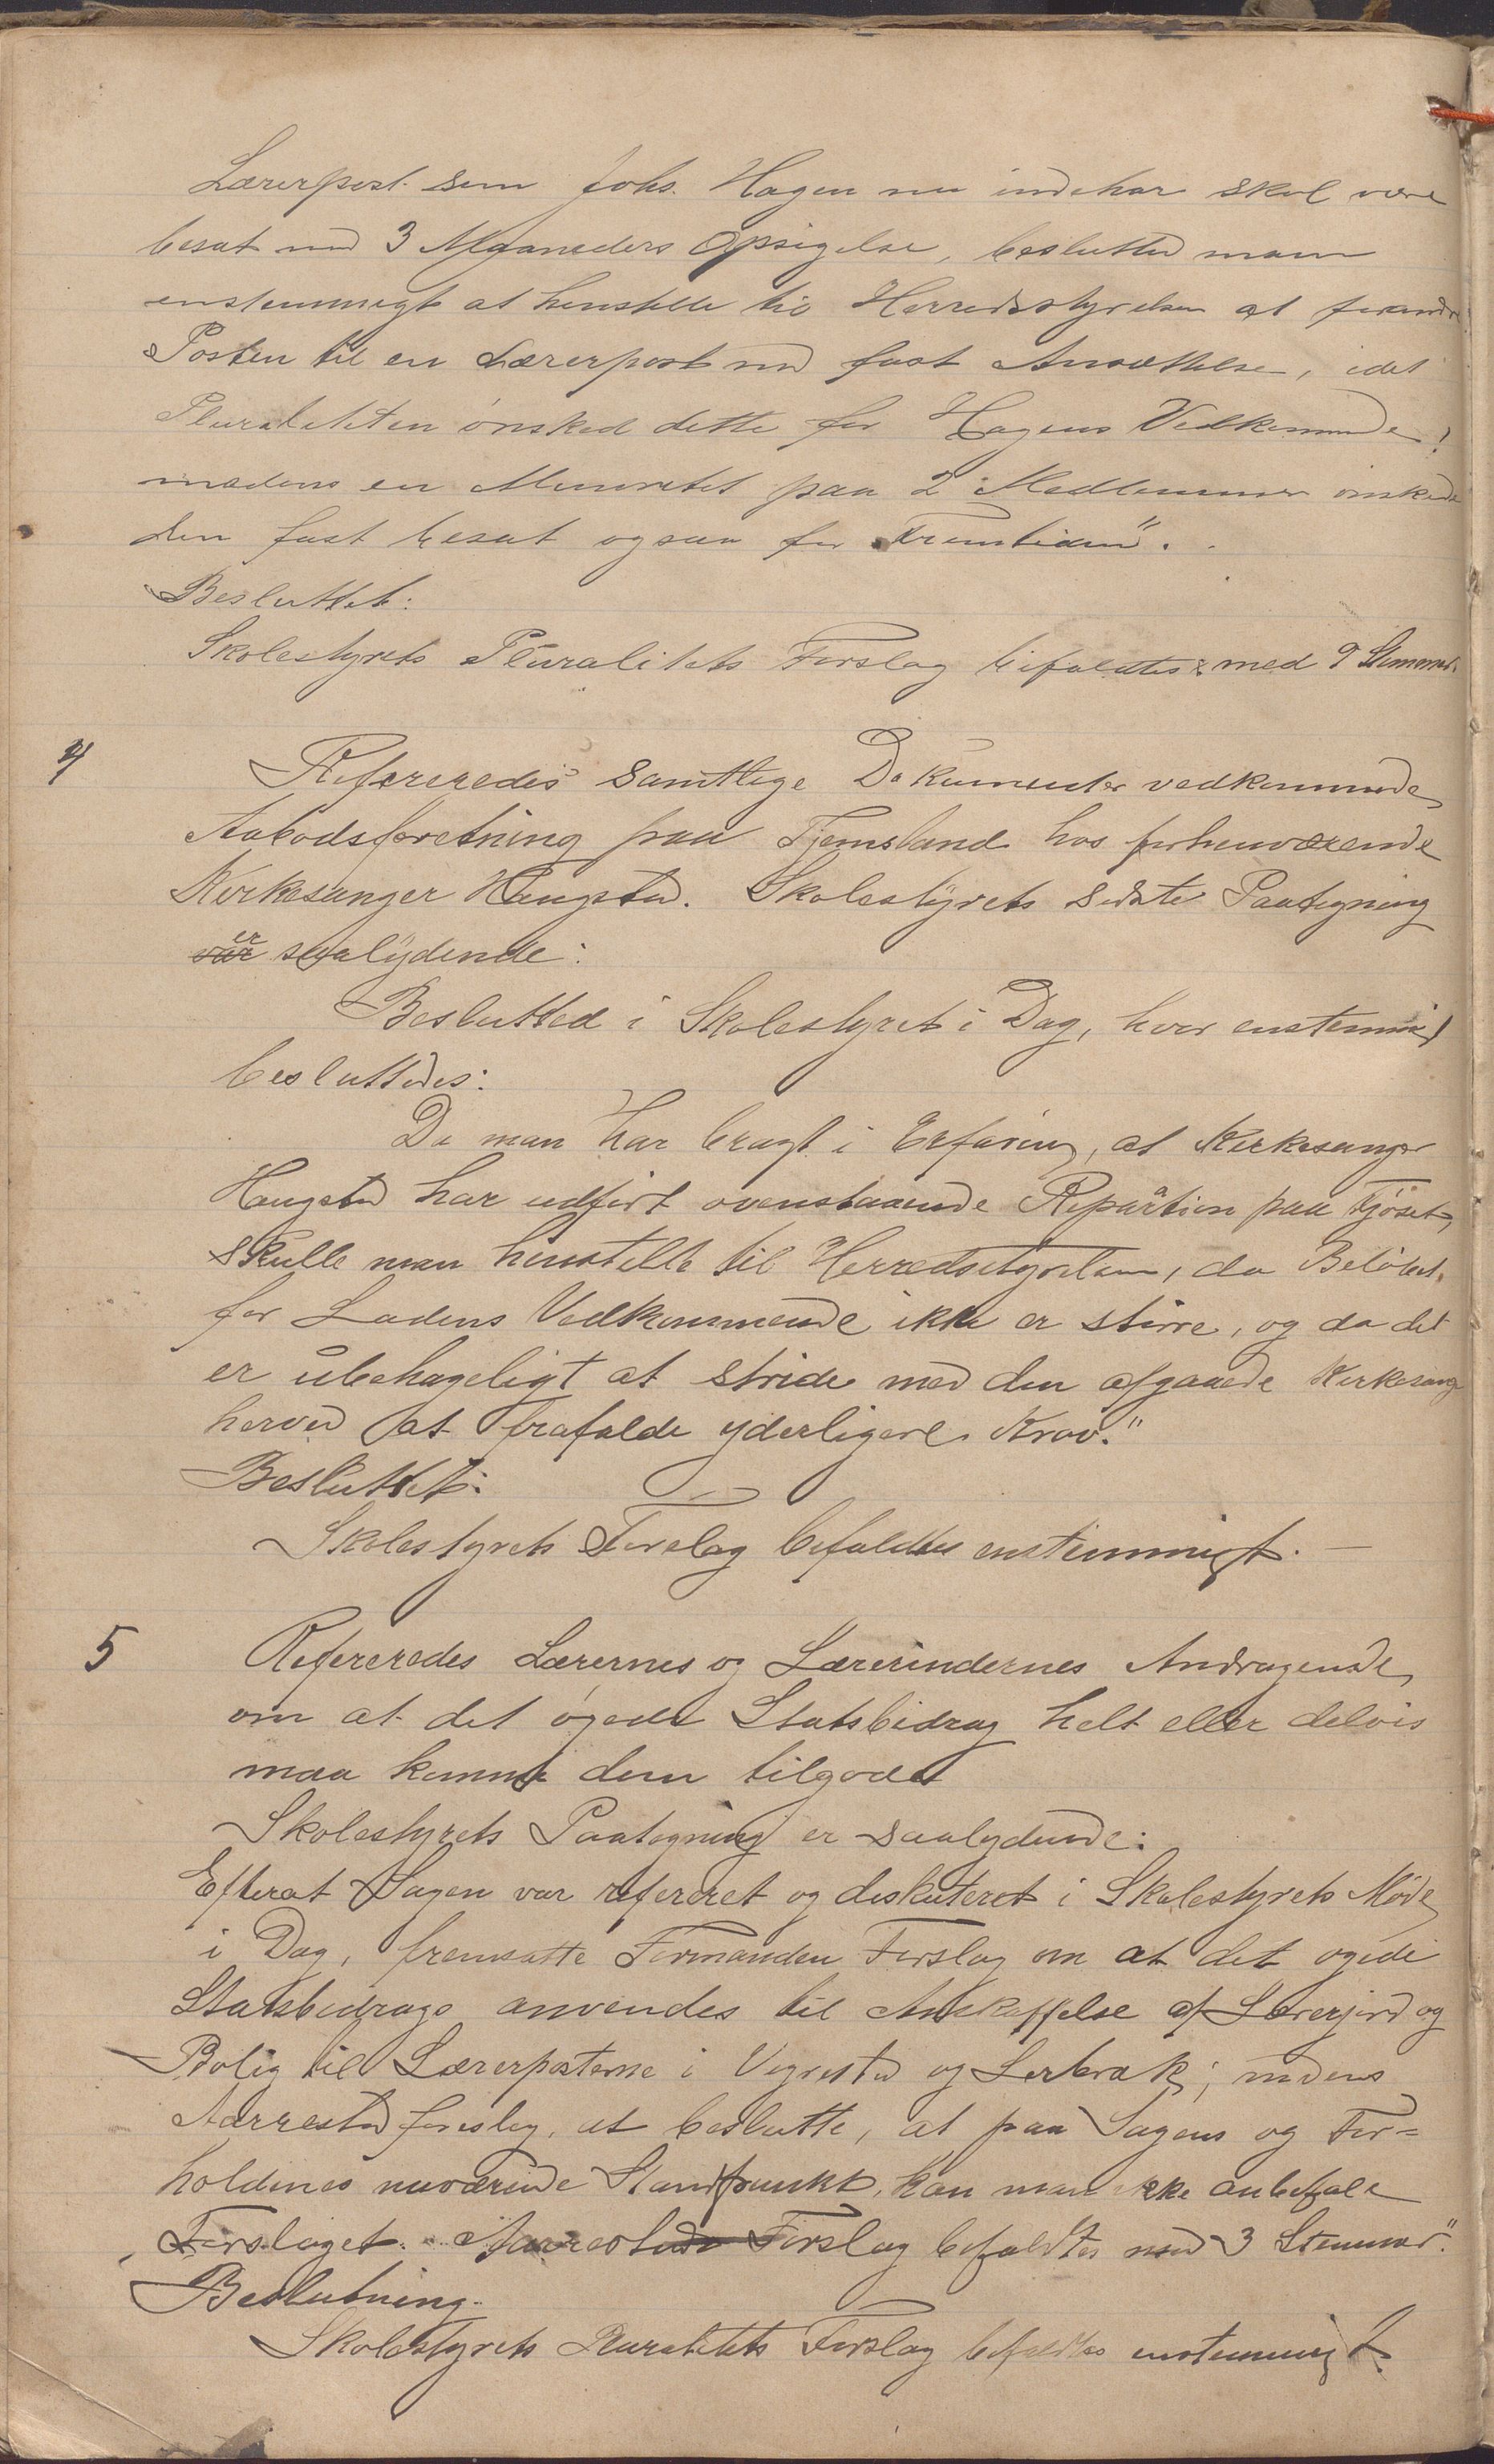 Lærerpost som Johs. Hagen nu indehar skal være
besat med 3 Maaneders Opsigelse, beslutted man
enstemmigt at henstille til Herredsstyrelsen at forandre
Posten til en Lærerpost med fast Ansættelse, idet
Pluraliteten ønsked dette for Hagens Vedkommende,
medens en Minoritet paa 2 Medlemmer ønskede
den fast besat ogsaa for Fremtiden".
Besluttet:
Skolestyrets Pluralitets Forslag bifaldtes med 9 Stemmer.
4 Refereredes samtlige Dokumenter vedkommende
Aabodsforretning paa Tjemsland hos forhenværende
Kirkesanger Haugstad. Skolestyrets sidste Paategning
er saalydende:
Beslutted i Skolestyret i Dag, hvor enstemmigt
besluttedes:
Da man har bragt i Erfaring, at Kirkesanger
Haugstad har udført ovenstaaende Reparation paa Fjøset,
skulle man henstille til Herredsstyrelsen, da Beløbet
for Ladens Vedkommende ikke er større, og da det
er ubehageligt at stride med den afgaaede Kirkesanger
herved at frafalde yderligere Krav."
Besluttet:
Skolestyrets Forslag bifaldtes enstemmigt. —
5 Refereredes Lærernes og Lærerindernes Andragende
om at det øgede Statsbidrag helt eller delvis
maa komme dem tilgode
Skolestyrets Paategning er saalydende:
Efterat Sagen var refereret og diskuteret i Skolestyrets Møde
i Dag, fremsatte Formanden Forslag om at det øgede
Statsbidrags anvendes til Anskaffelse af Lærerjord og
Bolig til Lærerposterne i Vigrestad og Lerbrak; medens
Aarrestad foreslog, at beslutte, at paa Sagens og For=
holdenes nuværende Standpunkt, kan man ikke anbefale
Forslaget. Aarrestads Forslag bifaldtes med 3 Stemmer".
Beslutning.
Skolestyrets Pluralitets Forslag bifaldtes enstemmigt.